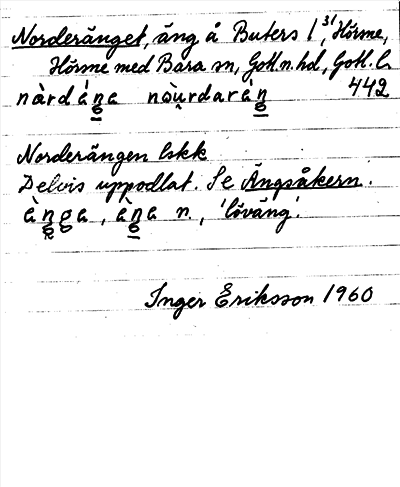 Norderänget, äng å Buters 1³¹, Hörme,
Hörsne med Bara sn, Gotl. n. hd, Gotl. l.
442
Norderängen lskk
Delvis uppodlat. Se Ängsåkern.
n., 'löväng'.
Inger Eriksson 1960